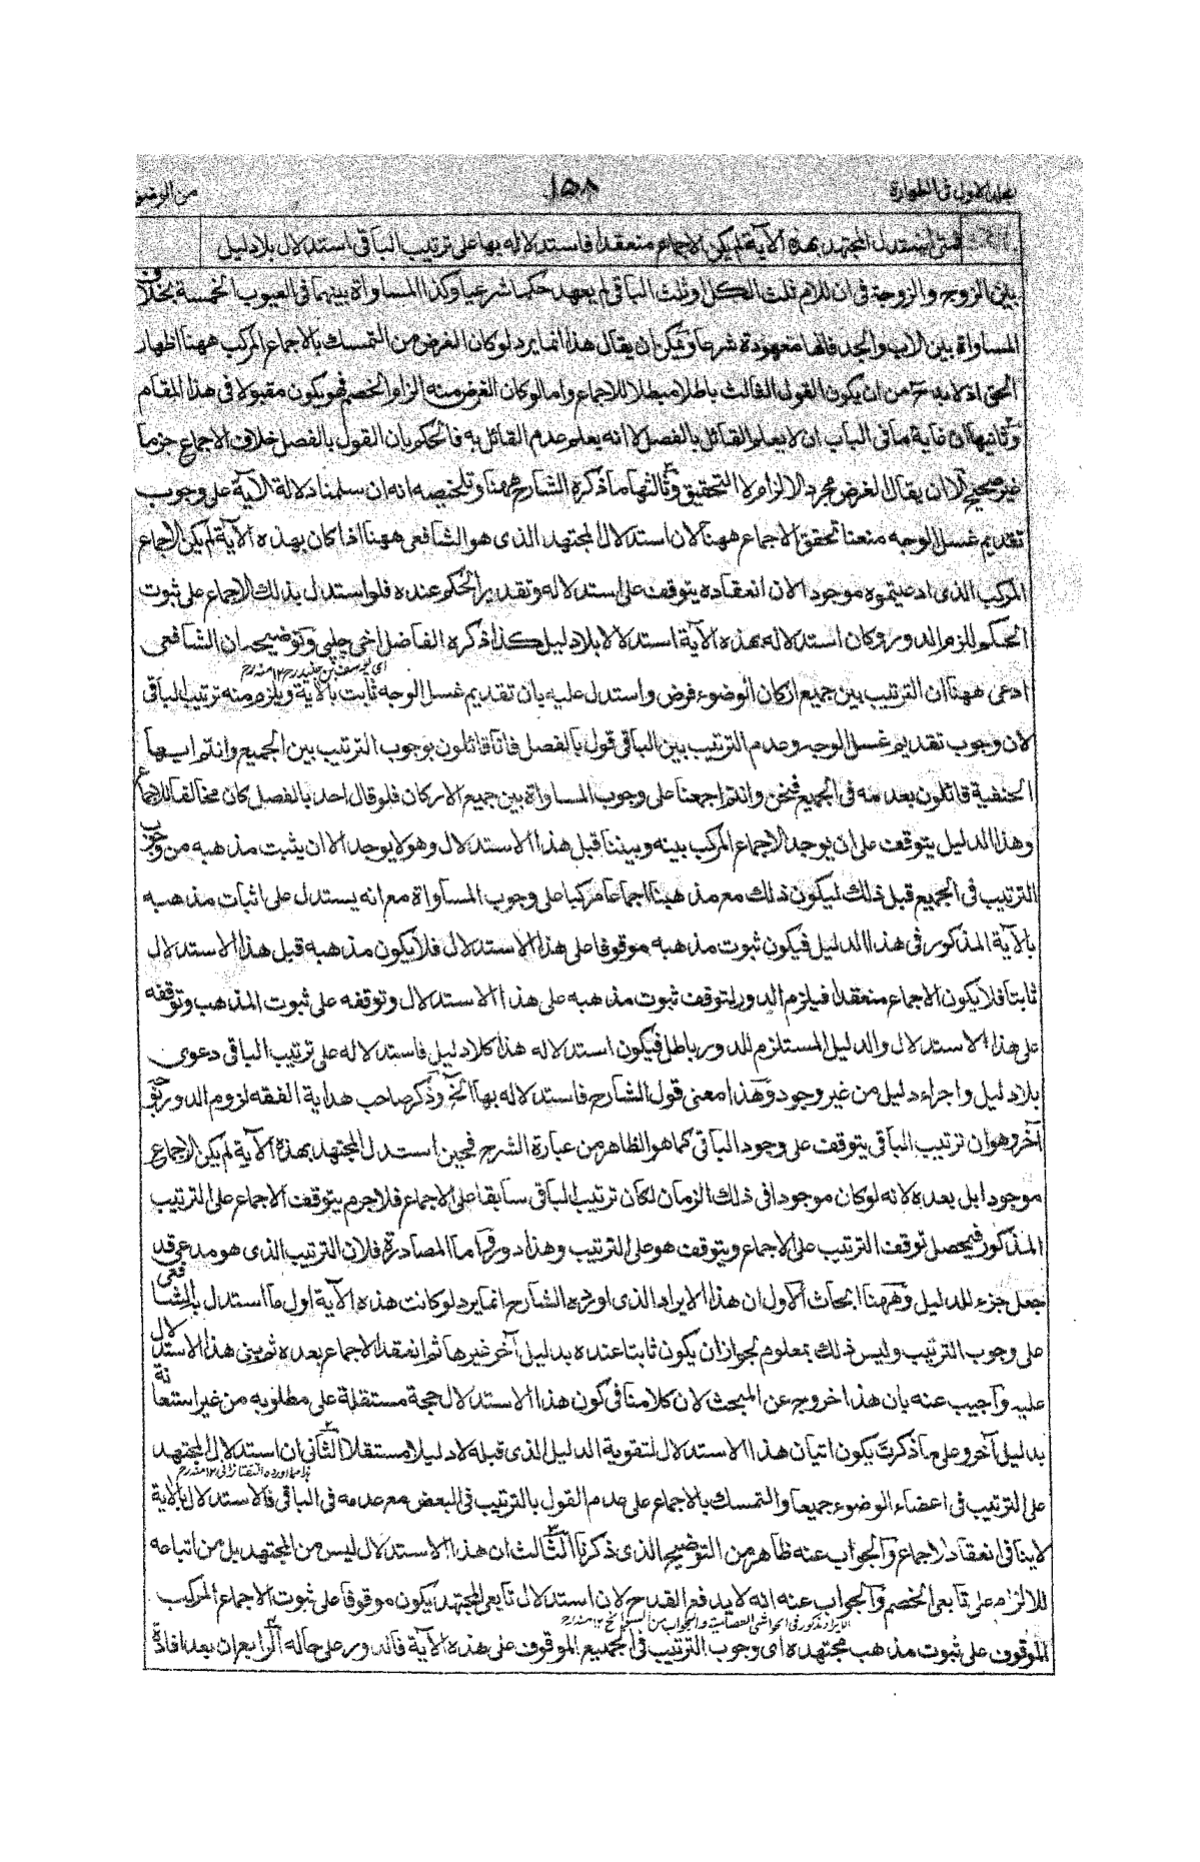 المجلد الاول فى الطهارة ١٥٨ من الوضوء
فمتى استدل المجتهد بهذه الآية لم يكن الاجماع منعقدا فاستدلاله بها على ترتيب الباقى استدلال بلا دليل
بين الزوج والزوجة فى ان للام ثلث الكل او ثلث الباقى لم يعهد حكما شرعيا وكذا المساواة بينهما فى العيوب الخمسة بخلاف
المساواة بين الاب والجد فانها معهودة شرعا ويمكن ان يقال هذا انما يرد لو كان الغرض من التمسك بالاجماع المركب ههنا اظهار
الحق اذ لا بد ح من ان يكون القول الثالث باطلا مبطلا للاجماع واما لو كان الغرض منه الزام الخصم فهو يكون مقبولا فى هذا المقام
وثانيها ان غاية ما فى الباب ان لا يعلم القائل بالفصل لا انه يعلم عدم القائل به فالحكم بان القول بالفصل خلاف الاجماع جزما
غير صحيح الا ان يقال الغرض مجرد الالزام لا التحقيق وثالثها ما ذكره الشارح ههنا وتلخيصه انه ان سلمنا دلالة الآية على وجوب
تقديم غسل الوجه منعنا تحقق الاجماع ههنا لان استدلال المجتهد الذى هو الشافعى ههنا اذا كان بهذه الآية لم يكن الاجماع
المركب الذى ادعيتموه موجودا لان انعقاده يتوقف على استدلاله وتقدير الحكم عنده فلو استدل بذلك الاجماع على ثبوت
الحكم للزم الدور وكان استدلاله بهذه الآية استدلالا بلا دليل كذا ذكره الفاضل اخى چلپى وتوضيحه ان الشافعى
اى يوسف بن جنيد رح ١٢ منه رح
ادعى ههنا ان الترتيب بين جميع اركان الوضوء فرض واستدل عليه بان تقديم غسل الوجه ثابت بالآية ويلزم منه ترتيب الباقى
لان وجوب تقديم غسل الوجه وعدم الترتيب بين الباقى قول بالفصل فانا قائلون بوجوب الترتيب بين الجميع وانتم ايها
الحنفية قائلون بعدمه فى الجميع فنحن وانتم اجمعنا على وجوب المساواة بين جميع الاركان فلو قال احد بالفصل كان مخالفا للاجماع
وهذا الدليل يتوقف على ان يوجد الاجماع المركب بينه وبيننا قبل هذا الاستدلال وهو لا يوجد الا ان يثبت مذهبه من وجوب
الترتيب فى الجميع قبل ذلك ليكون ذلك مع مذهبنا اجماعا مركبا على وجوب المساواة مع انه يستدل على اثبات مذهبه
بالآية المذكور فى هذا الدليل فيكون ثبوت مذهبه موقوفا على هذا الاستدلال فلا يكون مذهبه قبل هذا الاستدلال
ثابتا فلا يكون الاجماع منعقدا فيلزم الدور لتوقف ثبوت مذهبه على هذا الاستدلال وتوقفه على ثبوت المذهب وتوقفه
على هذا الاستدلال والدليل المستلزم للدور باطل فيكون استدلاله هذا كلا دليل فاستدلاله على ترتيب الباقى دعوى
بلا دليل واجراء دليل من غير وجوده وهذا معنى قول الشارح فاستدلاله بها الخ وذكر صاحب هداية الفقه لزوم الدور بوجه
آخر وهو ان ترتيب الباقى يتوقف على وجود الباقى كما هو الظاهر من عبارة الشرح فحين استدل المجتهد بهذه الآية لم يكن الاجماع
موجودا بل بعده لانه لو كان موجودا فى ذلك الزمان لكان ترتيب الباقى سابقا على الاجماع فلا جرم يتوقف الاجماع على الترتيب
المذكور فيحصل توقف الترتيب على الاجماع ويتوقف هو على الترتيب وهذا دور واما المصادرة فلان الترتيب الذى هو مدعى قد
جعل جزء للدليل وههنا ابحاث الاول ان هذا الايراد الذى اورده الشارح انما يرد لو كانت هذه الآية اول ما استدل به الشافعى
على وجوب الترتيب وليس ذلك بمعلوم لجواز ان يكون ثابتا عنده بدليل آخر غيرها ثم انعقد الاجماع بعده ثم بنى هذا الاستدلال
عليه واجيب عنه بان هذا خروج عن المبحث لان كلامنا فى كون هذا الاستدلال حجة مستقلة على مطلوبه من غير استعانة
بدليل آخر وعلى ما ذكرت يكون اتيان هذا الاستدلال لتقوية الدليل الذى قبله لا دليلا مستقلا الثانى ان استدلال المجتهد
هذا مما اورده التفتازانى ١٢ منه رح
على الترتيب فى اعضاء الوضوء جميعا والتمسك بالاجماع على عدم القول بالترتيب فى البعض مع عدمه فى الباقى فالاستدلال بالآية
لا ينافى انعقاد الاجماع والجواب عنه ظاهر من التوضيح الذى ذكرنا الثالث ان هذا الاستدلال ليس من المجتهد بل من اتباعه
للالزام على تابعى الخصم والجواب عنه انه لا يدفع القدح لان استدلال تابعى المجتهد يكون موقوفا على ثبوت الاجماع المركب
الايراد مذكور فى الحواشى العصامية والجواب من ١٢ منه رح
الموقوف على ثبوت مذهب مجتهده اى وجوب الترتيب فى الجميع الموقوف على هذه الآية فالدور على حاله الرابع ان بعد افادة